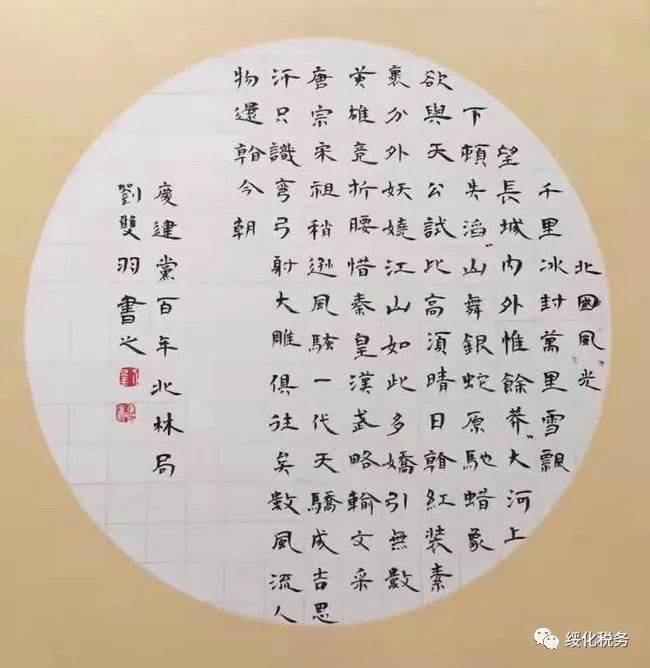 北國風光
千里冰封萬里雪飄
望長城內外惟餘莽〃大河上
下頓失滔〃山舞銀蛇原馳蜡象
欲與天公試比高須晴日看紅裝素
裹分外妖嬈江山如此多嬌引無數
英雄竞折腰惜秦皇漢武略輸文采
唐宗宋祖稍遜風騷一代天驕成吉思
汗只識彎弓射大雕俱往矣数風流人
物還看今朝
慶建黨百年北林局
劉雙羽書之
绥化税务